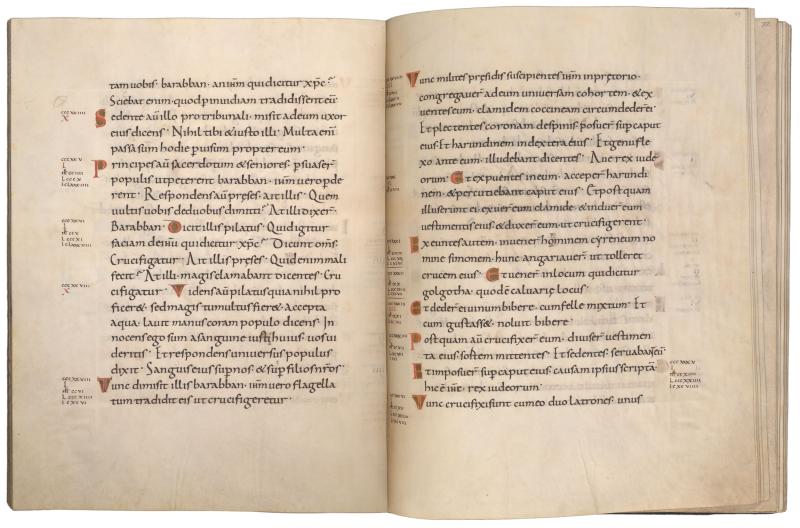 tam uobis · barabban · an ihm qui dicitur xpc ?
Sciebat enim · quod p inuidiam tradidissent eū
Sedente au illo pro tribunali · misit ad eum uxor
eius dicens · Nihil tibi & iusto illi · Multa eni
passa sum hodie p uisum propter eum ·
Principes au sacerdotum & seniores · psuaser
populis ut peterent barabban · ihm uero pde
rent · Respondens au preses · ait illis · Quem
uultis uobis de duobus dimitti ? At illi dixer
Barabban · Dicit illis pilatus · Quid igitur
faciam de ihu qui dicitur xpc ? Dicunt oms
Crucifigatur · Ait illis preses · Quid enim mali
fecit ? At illi · magis clamabant dicentes · Cru
cifigatur · Videns au pilatus quia nihil pro
ficer& · sed magis tumultus fier& · accepta
aqua · lauit manus coram populo dicens · In
nocens ego sum a sanguine iusti huius · uos ui
deritis · Et respondens uniuersus populus
dixit · Sanguis eius sup nos & sup filios nros ·
Tunc dimisit illis barabban · ihm uero flagella
tum tradidit eis ut crucifigeretur ·
Tunc milites presidis suscipientes ihm in pretorio ·
congregauer ad eum uniuersam cohortem · & ex
uentes eum · clamidem coccineam circumdeder ei ·
Et plectentes coronam de spinis · posuer sup caput
eius · Et harundinem in dextera eius · Et genu fle
xo ante eum · illudebant dicentes · Aue rex iude
orum · Et expuentes in eum · acceper harundi
nem · & percutiebant caput eius · Et postquam
illuserunt ei · exuer eum clamide · & induer eum
uestimentis eius & duxer eum ut crucifigerent ·
Exeuntes autem · inuener hominem cyreneum no
mine simonem · hunc angariauer ut tolleret
crucem eius · Et uener in locum qui dicitur
golgotha · quod ē caluarię locus ·
Et deder ei uinum bibere · cum felle mixtum · Et
cum gustass& · noluit bibere ·
Postquam au crucifixer eum · diuiser uestimen
ta eius · sortem mittentes · Et sedentes · seruabant eū
Et imposuer sup caput eius · causam ipsius scriptā ·
hic ē ihc · rex iudeorum ·
Tunc crucifixi sunt cum eo duo latrones · unus